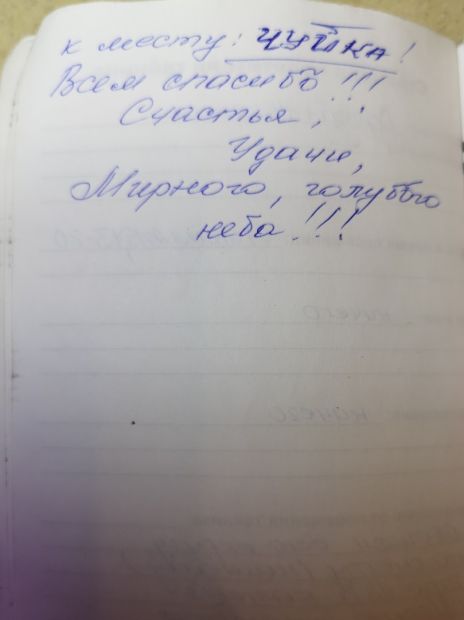 к месту: ЧУЙКА!
Всем спасибо!!!
Счастья,
Удачи,
Мирного, голубого
неба!!!
ничего